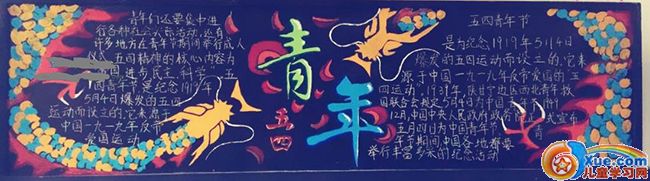 青年们还要集中进
行各种社会实际活动,还有
许多地方在青年节期间举行成人
五四精神的核心内容为
进步民主,科学
节是为纪念1919年
5月4日爆发的五四
运动而设立的,它来源于
中国一九一九年反帝
爱国运动
青年
五四
五四青年节
是为纪念1919年5月4日
爆发的五四运动而设立的,它来
源于中国一九一九年反帝爱国的五
四运动,1939年,陕甘宁边区西北青年救
国联合会规定5月4日为中国
五月,中国中央人民政府政府 正式宣布
五月四日为中国青年节 青
年节期间中国各地都要
举行丰富多采的纪念活动
Xue.com
儿童学习网